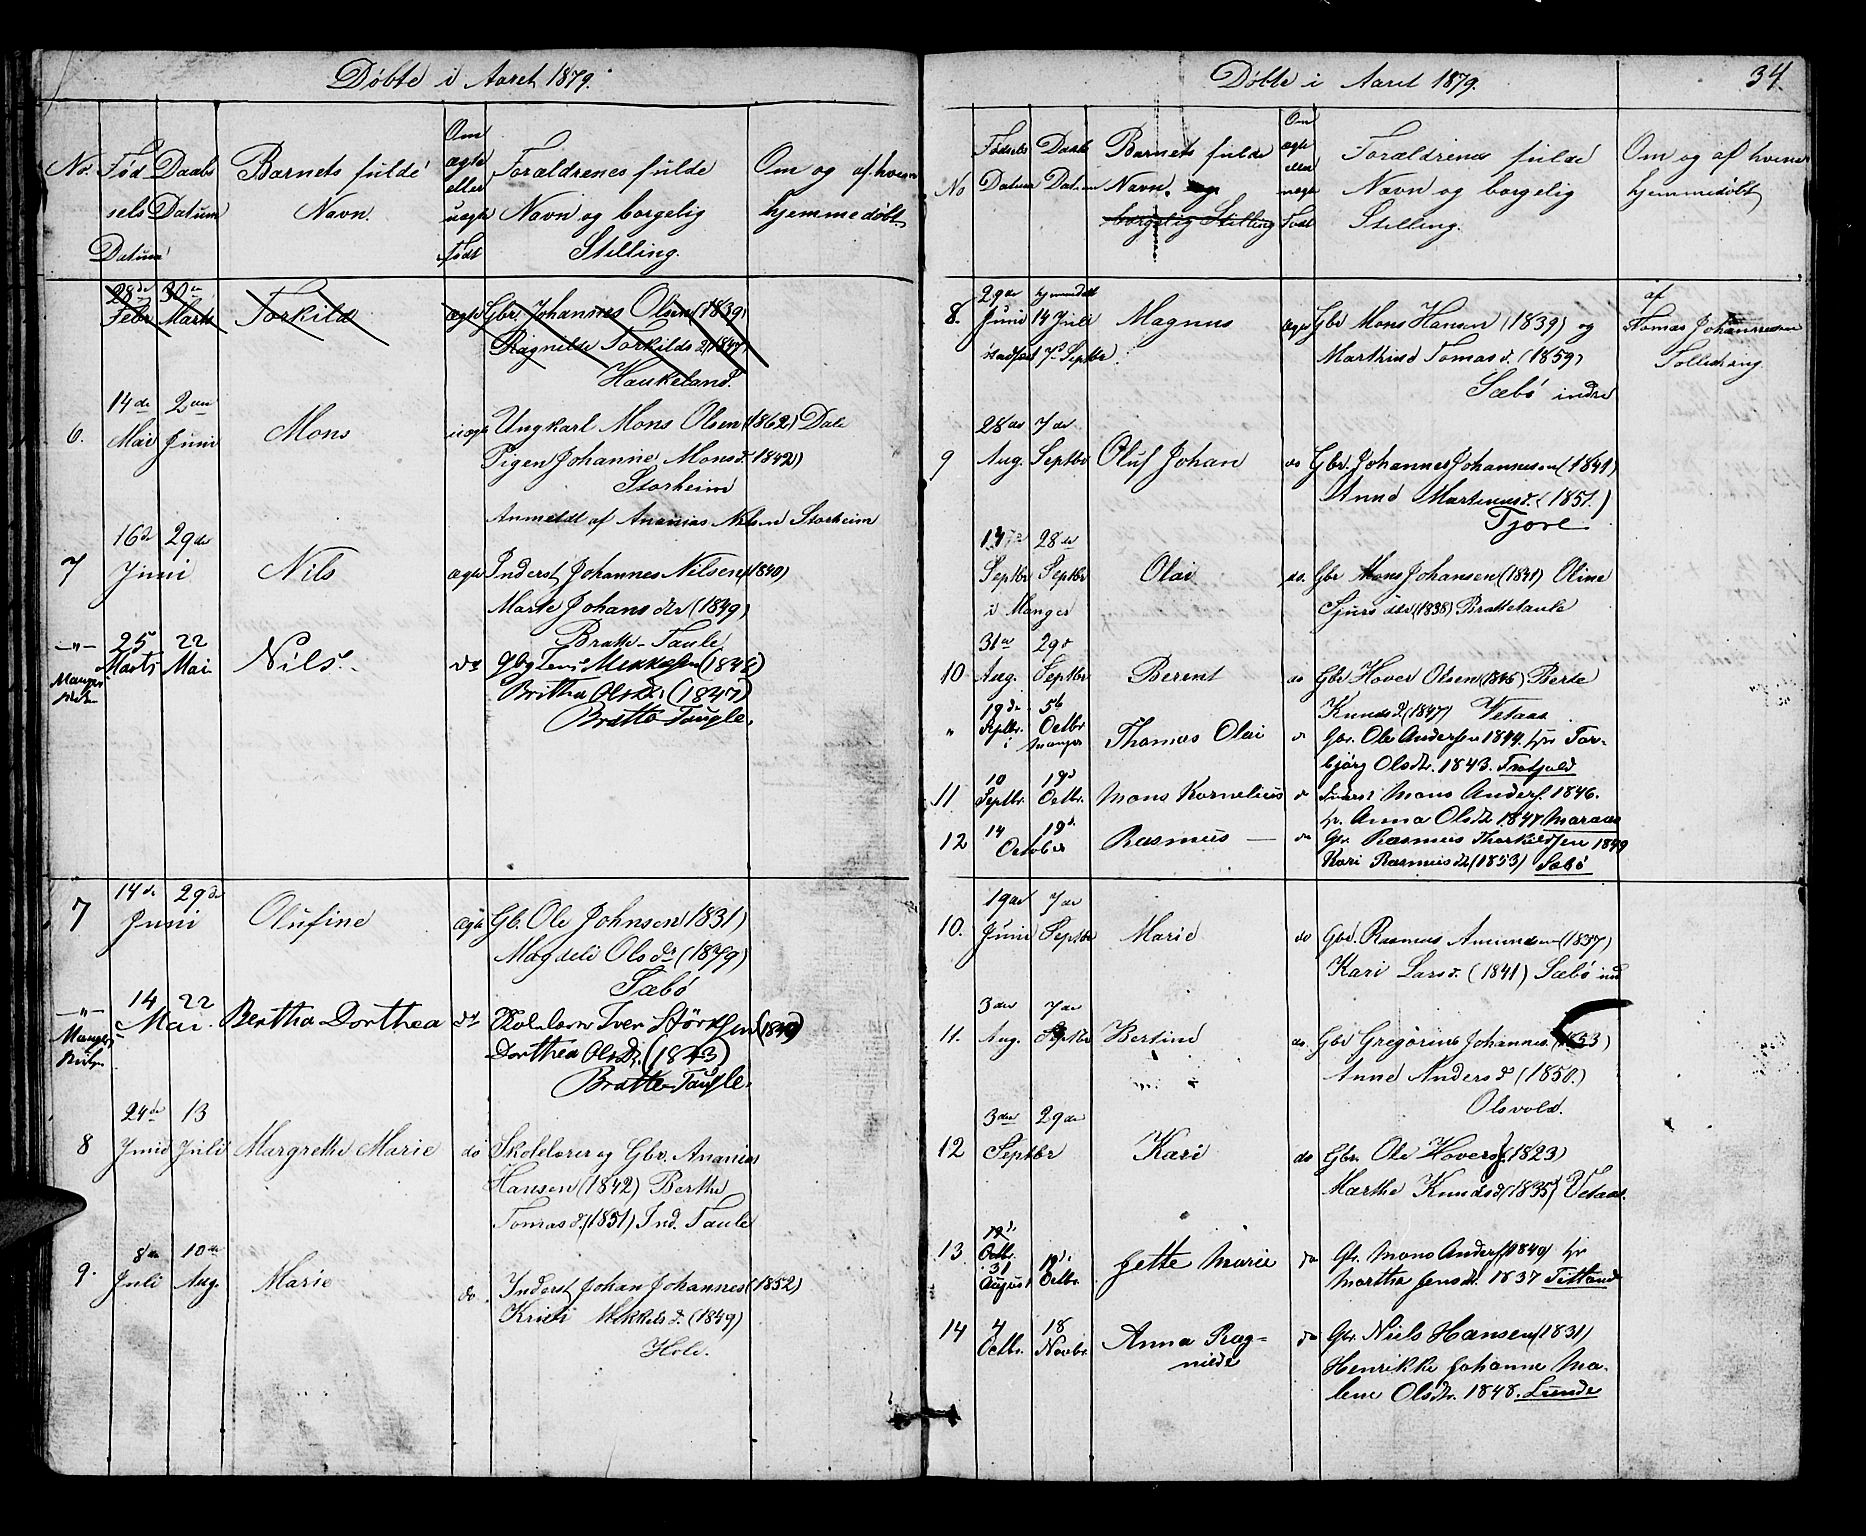 Døbte i Aaret 1879.
No. Fødsels Datum Daabs Datum Barnets fulde Navn. Om ægte eller uægte Født Forældrenes fulde Navn og borgelig Stilling. Om og af hvem hjemmedøbt
28de Febr 30te Marts Torkild ægte Gbr. Johannes Olsen (1839)
Ragnilde Torkilds d (1847)
Haukeland.
6. 14de Mai 2den Juni Mons uægte Ungkarl Mons Olsen (1862) Dale
Pigen Johanne Monsd. 1842)
Storheim
Anmeldt af Ananias Nilsen Storheim
7 16de 29de Juni Nils ægte Inderst Johannes Nilsen (1840)
Marte Johans dtr (1849)
Bratte-Taule
—"— Manger Kirke 25 Marts 22 Mai Nils do Gbr Jens Mikkelsen (1846)
Britha Olsdr. (1847)
Bratte Taugle.
7 14de 29de Juni Olufine ægte Gb. Ole Johnsen 1831)
Magdeli Olsdr (1839)
Sæbø
—"— Manger Kirke 14 22 Mai. Bertha Dorthea do Skolelærer Iver Størksen (1840)
Dorthea Olsdr. (1843)
Bratte-Taugle.
8 24de Juni 13 Juli Margrethe Marie do Skolelærer og Gbr. Ananias
Hansen (1842) Berthe
Tomasd. (1851) Ind. Taule
9. 8de Juli 10de Aug. Marie do. Inderst Johan Johannes (1852)
Kristi Mikkelsd. (1849)
Hole.
Døbte i Aaret 1879.
34.
No Fødsels Datum Daabs Datum Barnets fulde Navn. og borgelig Stilling Om ægte eller uægte Født Forældrenes fulde Navn og borgelig Stilling. Om og af hvem hjemmedøbt
8. 29de Juni hjemmedøbt 14 Juli Magnus ægte Gbr Mons Hansen (1839) og af Tomas Johannesen
stadfæst 7de Septbr. Marthine Tomas d. (1859) Solledrang.
Sæbø indre
9 28de Aug. 7de Septbr Oluf Johan do Gbr. Johannes Johannesen (1841)
Anne Martinusd. (1851.)
Tjore
Septbr 28de Septbr Olai do. Gbr Mons Johansen (1841) Oline
i Manger Sjurs dtr (1838) Brattetaule
10 31te Aug. 29de Septbr Berent do Gbr Hover Olsen (1846) Berte
Knuds d (1847) Vetaas
" 19de Septbr. 5te Octbr i Manger Thomas Olai do Gbr. Ole Andersen 1844. hr Torbjørg
Olsdtr. 1843. Trotjold
11 10 Septbr. 19de Octbr. Mons Kornelius do Inderst Mons Anders. 1846.
hr. Anna Olsdtr 1847 Maraas
12 14 19de October Rasmus — do Gbr. Rasmus Thorkildsen 1849
Kari Rasmusdtr (1853) Sæbø
10. 19de Juni 7de Septbr Marie do Gbd. Rasmus Amundsen (1837)
Kari Larsd. (1841) Sæbø ind
11. 3die Aug. 7de Septbr Bertine do. Gbr Gregorius Johannes. (1853)
Anne Anders d (1850.)
Olsvold.
12 3die 29de Septbr Kari do Gbr. Ole Hovers. (1823)
Marthe Knudsd (1835) Vetaas.
13 19de Octbr. 31 August 19de Octbr. Jette Marie do Gbr. Mons Anders. (1840) hr
Martha Jensdtr. 1837 Titland
14 4 Octbr. 18 Novbr. Anna Ragnilde do Gbr. Niels Hansen (1831)
Henrikke Johanne Malene
Olsdtr. 1848. Lunde